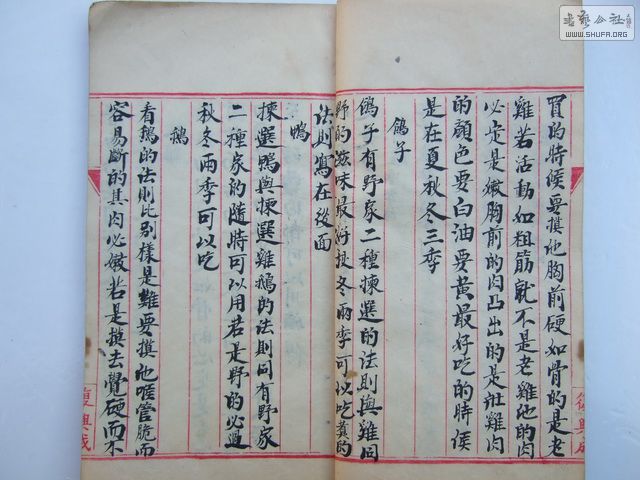 買的時候要摸他胸前硬如骨的是老
雞若活動如粗筋就不是老雞他的肉
必定是嫩胸前的肉凸出的是壯雞肉
的顏色要白油要黃最好吃的時侯
是在夏秋冬三季
鴿子
鴿子有野家二種揀選的法則與雞同
野的滋味最好秋冬兩季可以吃糞的
法則寫在後面
鴨
揀選鴨與揀選雞鵝的法則同有野家
二種家的隨時可以用若是野的必過
秋冬兩季可以吃
鵝
看鵝的法則比別樣是難要摸他喉管脆而
容易斷的其肉必嫩若是摸去覺硬而不
復興成
復興成
書藝公社
WWW.SHUFA.ORG